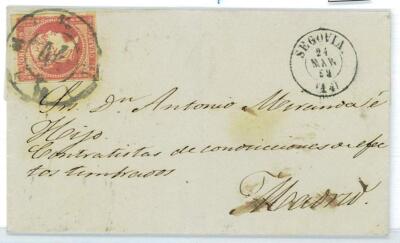 SEGOVIA
24
MAR.
(14)
Sr. Dn. Antonio Miranda é
Hijo
Contratistas de condicciones de efec
tos timbrados
Madrid.